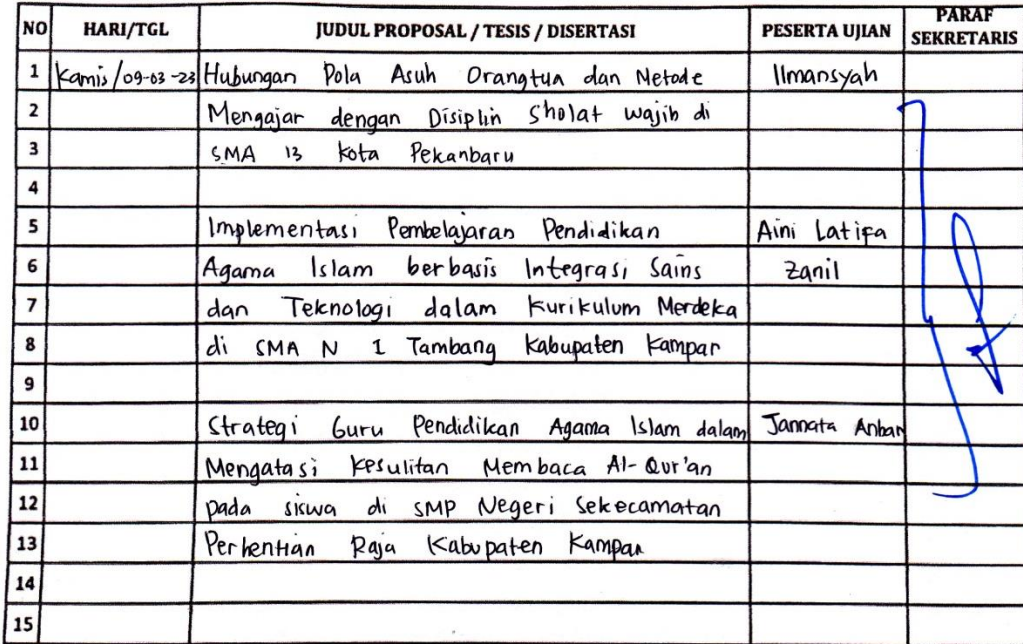 NO HARI/TGL JUDUL PROPOSAL / TESIS / DISERTASI PESERTA UJIAN PARAF SEKRETARIS
1 Kamis/09-03-23 Hubungan Pola Asuh Orangtua dan Metode Ilmansyah
2 Mengajar dengan Disiplin Sholat wajib di
3 SMA 13 Kota Pekanbaru
4
5 Implementasi Pembelajaran Pendidikan Aini Latifa
6 Agama Islam berbasis Integrasi Sains Zanil
7 dan Teknologi dalam Kurikulum Merdeka
8 di SMA N 1 Tambang Kabupaten Kampar
9
10 Strategi Guru Pendidikan Agama Islam dalam Jannata Anbar
11 Mengatasi Kesulitan Membaca Al-Qur'an
12 pada siswa di SMP Negeri Sekecamatan
13 Perhentian Raja Kabupaten Kampar
14
15